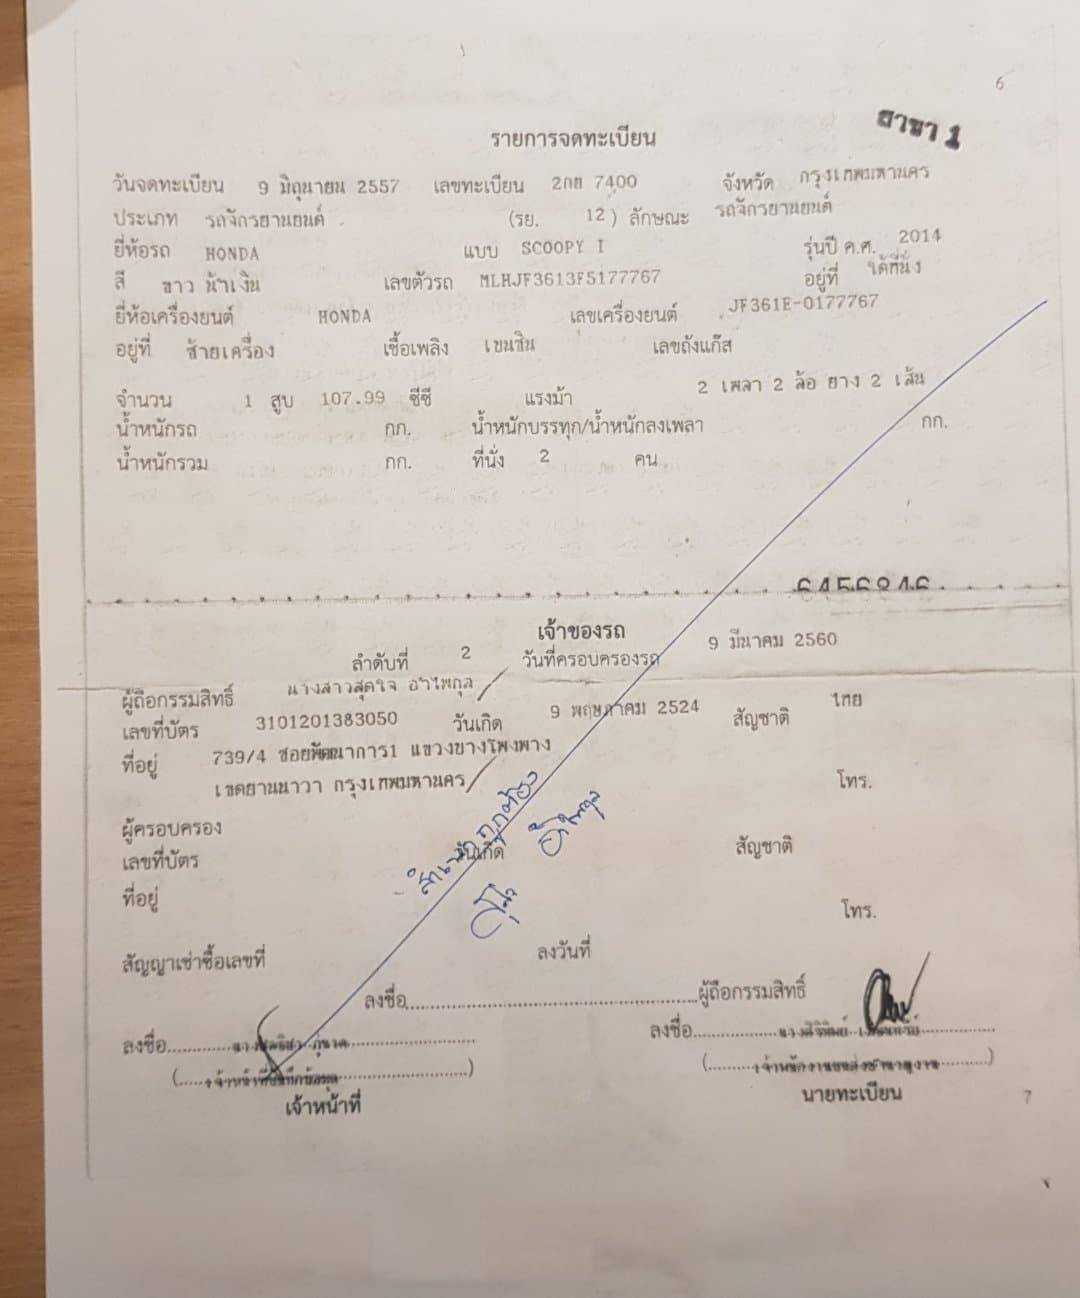 6
สาขา 1
รายการจดทะเบียน
วันจดทะเบียน 9 มิถุนายน 2557 เลขทะเบียน 2กย 7400 จังหวัด กรุงเทพมหานคร
ประเภท รถจักรยานยนต์ (รย. 12) ลักษณะ รถจักรยานยนต์
ยี่ห้อรถ HONDA แบบ SCOOPY I รุ่นปี ค.ศ. 2014
สี ขาว น้ำเงิน เลขตัวรถ MLHJF3613F5177767 อยู่ที่ ใต้ที่นั่ง
ยี่ห้อเครื่องยนต์ HONDA เลขเครื่องยนต์ JF361E-0177767
อยู่ที่ ซ้ายเครื่อง เชื้อเพลิง เบนซิน เลขถังแก๊ส
จำนวน 1 สูบ 107.99 ซีซี แรงม้า 2 เพลา 2 ล้อ ยาง 2 เส้น
น้ำหนักรถ กก. น้ำหนักบรรทุก/น้ำหนักลงเพลา กก.
น้ำหนักรวม กก. ที่นั่ง 2 คน
เจ้าของรถ
ลำดับที่ 2 วันที่ครอบครองรถ 9 มีนาคม 2560
ผู้ถือกรรมสิทธิ์ นางสาวสุดใจ อำไพกุล
เลขที่บัตร 3101201383050 วันเกิด 9 พฤษภาคม 2524 สัญชาติ ไทย
ที่อยู่ 739/4 ซอยพัฒนาการ1 แขวงบางโพงพาง
เขตยานนาวา กรุงเทพมหานคร โทร.
ผู้ครอบครอง
เลขที่บัตร วันเกิด สัญชาติ
ที่อยู่
โทร.
สำเนาถูกต้อง
สัญญาเช่าซื้อเลขที่ ลงวันที่
ลงชื่อ ผู้ถือกรรมสิทธิ์
ลงชื่อ ลงชื่อ
เจ้าหน้าที่ นายทะเบียน
7